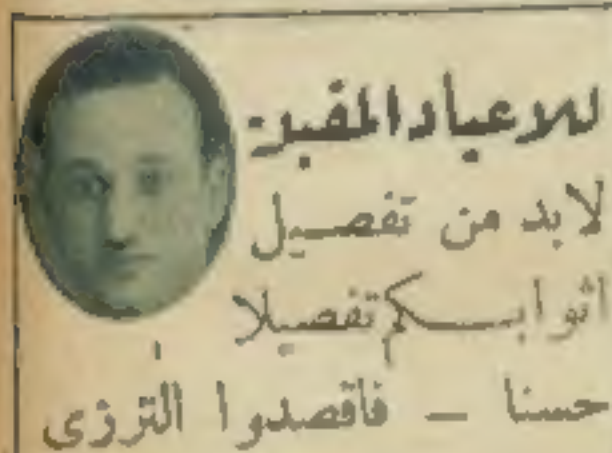 للاعياد المقبلة
لابد من تفصيل
اثوابكم تفصيلا
حسنا – فاقصدوا الترزى